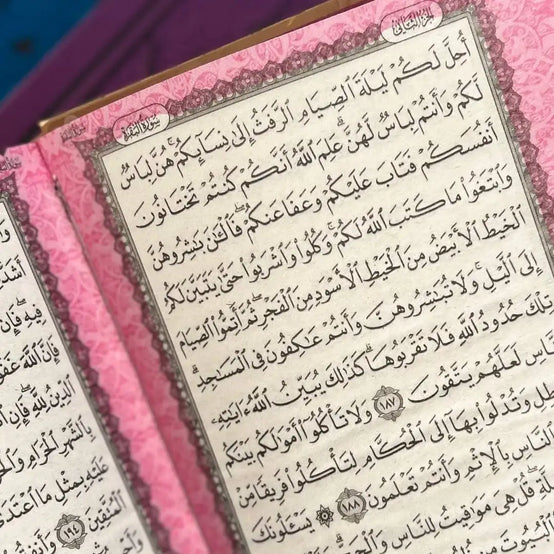 الجزء الثاني
سورة البقرة
أُحِلَّ لَكُمْ لَيْلَةَ ٱلصِّيَامِ ٱلرَّفَثُ إِلَىٰ نِسَآئِكُمْ ۚ هُنَّ لِبَاسٌ
لَّكُمْ وَأَنتُمْ لِبَاسٌ لَّهُنَّ ۗ عَلِمَ ٱللَّهُ أَنَّكُمْ كُنتُمْ تَخْتَانُونَ
أَنفُسَكُمْ فَتَابَ عَلَيْكُمْ وَعَفَا عَنكُمْ ۖ فَٱلْـَٰٔنَ بَـٰشِرُوهُنَّ
وَٱبْتَغُوا۟ مَا كَتَبَ ٱللَّهُ لَكُمْ ۚ وَكُلُوا۟ وَٱشْرَبُوا۟ حَتَّىٰ يَتَبَيَّنَ لَكُمُ
ٱلْخَيْطُ ٱلْأَبْيَضُ مِنَ ٱلْخَيْطِ ٱلْأَسْوَدِ مِنَ ٱلْفَجْرِ ۖ ثُمَّ أَتِمُّوا۟ ٱلصِّيَامَ
إِلَى ٱلَّيْلِ ۚ وَلَا تُبَـٰشِرُوهُنَّ وَأَنتُمْ عَـٰكِفُونَ فِى ٱلْمَسَـٰجِدِ ۗ
تِلْكَ حُدُودُ ٱللَّهِ فَلَا تَقْرَبُوهَا ۗ كَذَٰلِكَ يُبَيِّنُ ٱللَّهُ ءَايَـٰتِهِۦ
لِلنَّاسِ لَعَلَّهُمْ يَتَّقُونَ ١٨٧ وَلَا تَأْكُلُوٓا۟ أَمْوَٰلَكُم بَيْنَكُم
وَتُدْلُوا۟ بِهَآ إِلَى ٱلْحُكَّامِ لِتَأْكُلُوا۟ فَرِيقًا مِّنْ
ٱلنَّاسِ بِٱلْإِثْمِ وَأَنتُمْ تَعْلَمُونَ ١٨٨ ۞ يَسْـَٔلُونَكَ
قُلْ هِىَ مَوَٰقِيتُ لِلنَّاسِ وَٱلْحَجِّ
فِيهِ ۖ فَإِن
فَإِنَّ ٱللَّهَ
ٱلدِّينُ لِلَّهِ ۖ فَإِنِ
بِٱلشَّهْرِ ٱلْحَرَامِ
عَلَيْهِ بِمِثْلِ مَا ٱعْتَدَىٰ
ٱلْمُتَّقِينَ ١٩٤